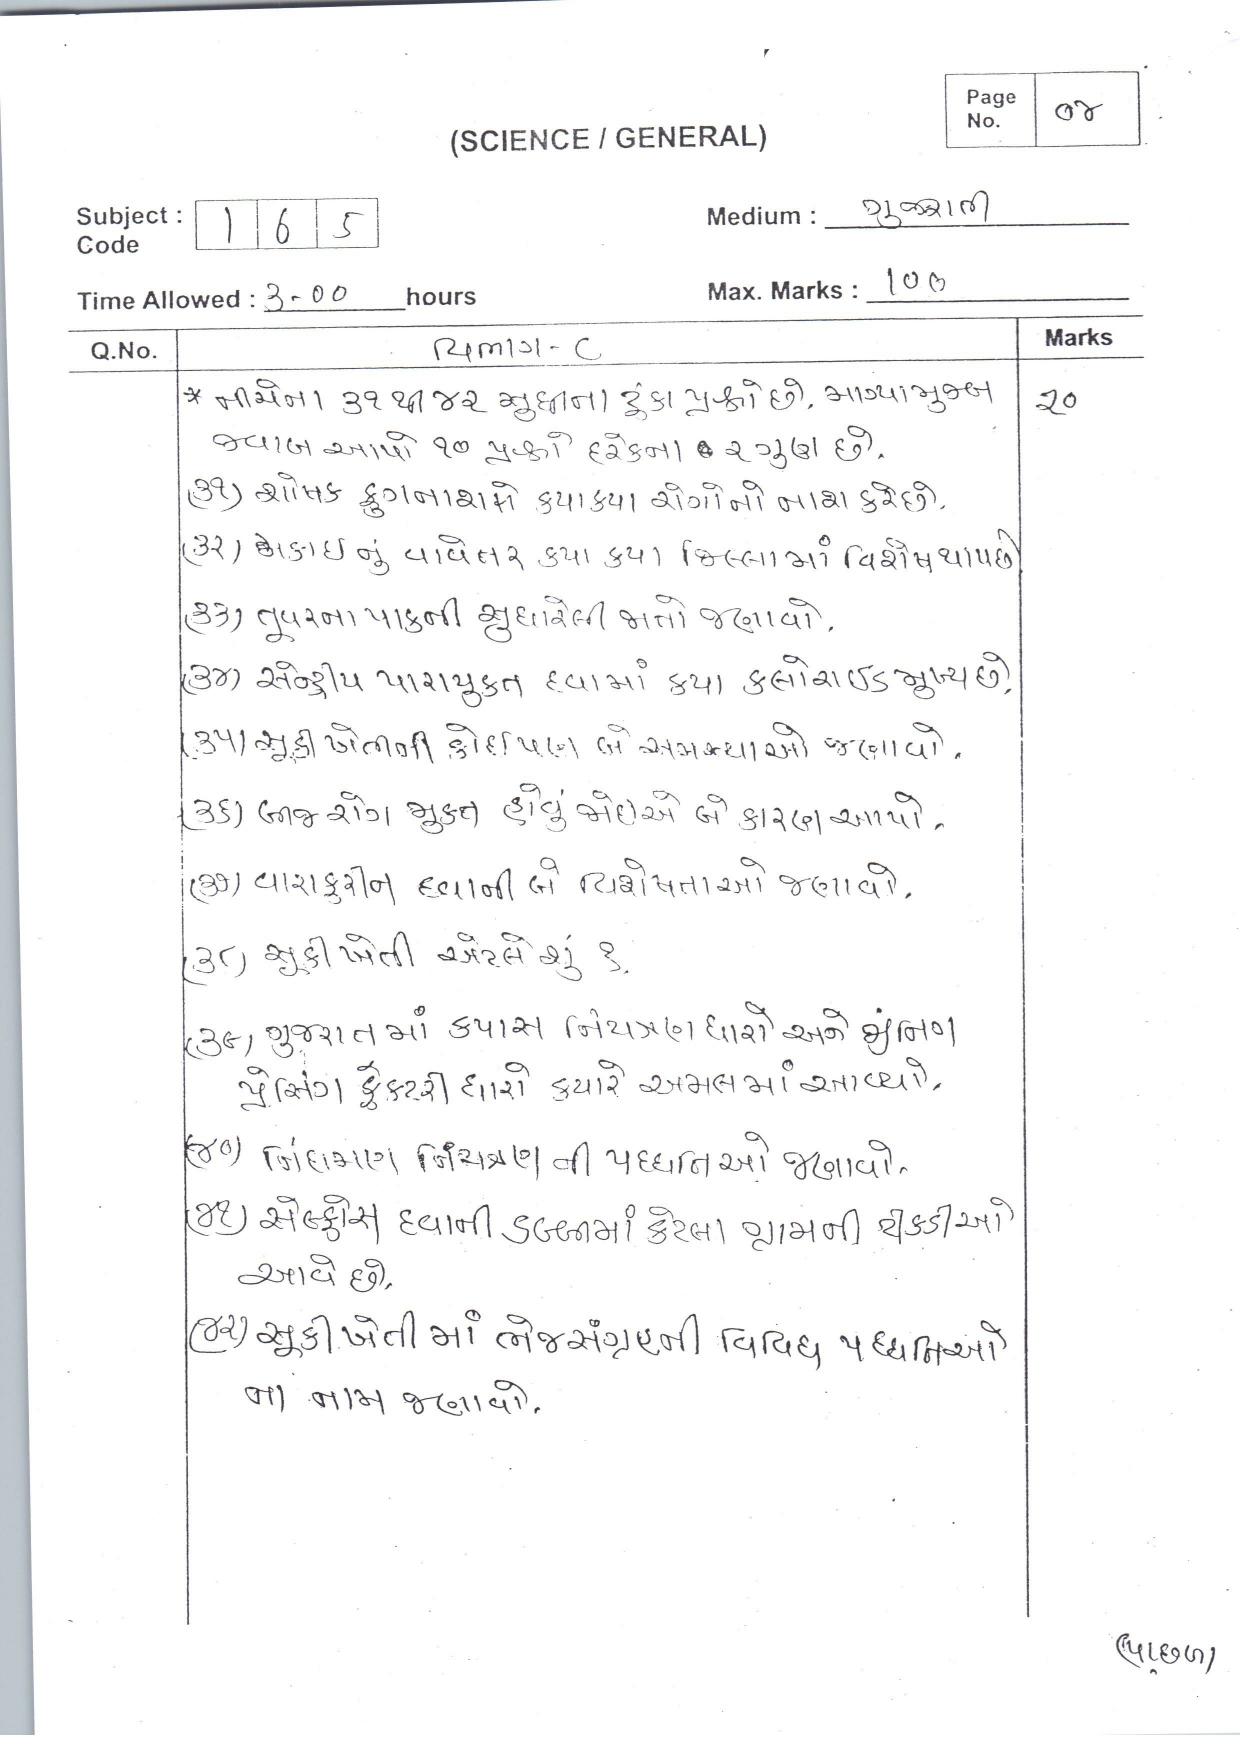 Page No. ૦૪
(SCIENCE / GENERAL)
Subject Code : 1 6 5
Medium : ગુજરાતી
Time Allowed : 3-00 hours
Max. Marks : 100
Q.No. વિભાગ - C Marks
* નીચેના ૩૧ થી ૪૨ સુધીના ટૂંકા પ્રશ્નો છે. માગ્યા મુજબ ૨૦
જવાબ આપો ૧૦ પ્રશ્નો દરેકના ૨ ગુણ છે.
(૩૧) શોષક ફુગનાશકો કયા કયા રોગોનો નાશ કરે છે.
(૩૨) મકાઇ નું વાવેતર કયા કયા જિલ્લામાં વિશેષ થાય છે
(૩૩) તૂવરના પાકની સુધારેલી જાતો જણાવો.
(૩૪) સેન્દ્રીય પારાયુકત દવામાં કયા કલોરાઇડ મુખ્ય છે.
(૩૫) સૂકી ખેતીની કોઈપણ બે સમસ્યાઓ જણાવો.
(૩૬) બીજ રોગ મુકત હોવું જોઇએ બે કારણ આપો.
(૩૭) વારાફરીન દવાની બે વિશેષતાઓ જણાવો.
(૩૮) સુકી ખેતી એટલે શું ?
(૩૯) ગુજરાત માં કપાસ નિયત્રણ ધારો અને જીનિગ
પ્રેસિંગ ફેકટરી ધારો કયારે અમલમાં આવ્યો.
(૪૦) નિંદામણ નિયત્રણ ની પધ્ધતિઓ જણાવો.
(૪૧) સેલ્ફોસ દવાની ડબ્બામાં કેટલા ગ્રામની ટીકડીઓ
આવે છે.
(૪૨) સૂકી ખેતી માં ભેજસંગ્રહની વિવિધ પધ્ધતિઓ
ના નામ જણાવો.
(પાછળ)